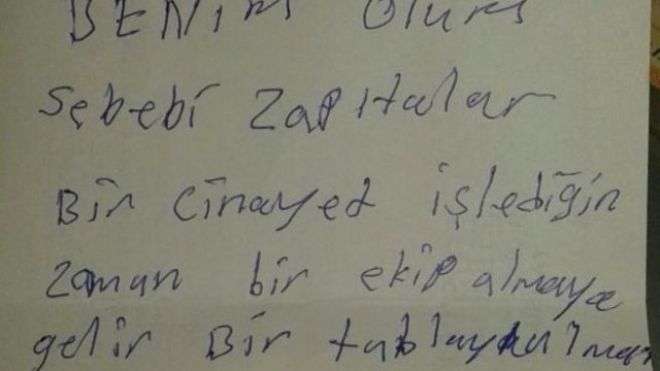 BENİM ölüm
Sebebi Zapıtalar
Bir Cinayet işlediğin
Zaman bir ekip almaya
gelir Bir